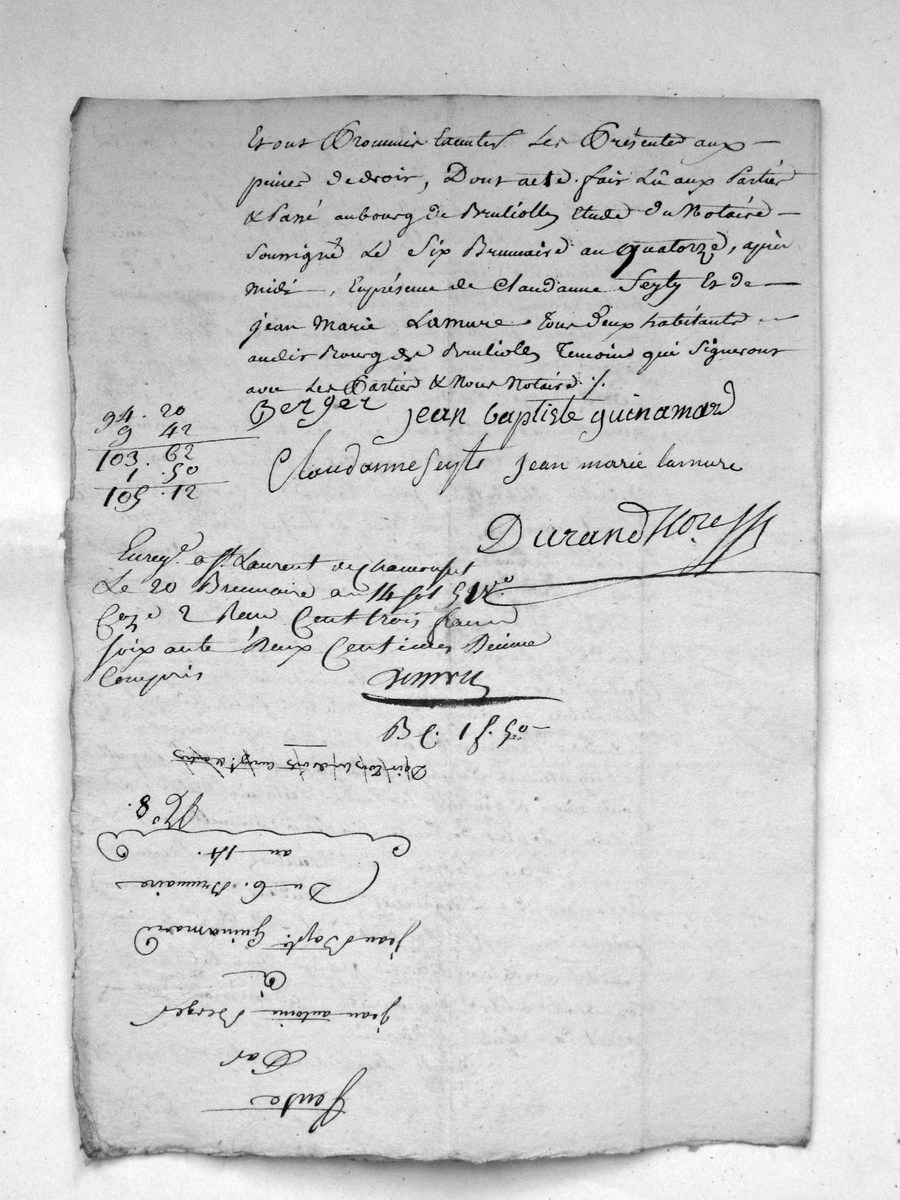 Et ont Promis Les Présentes aux
peines de droit, Dont acte fait Lû aux Parties
& Passé au bourg de Brulioles Etude du Notaire
Soussigné Le Six Brumaire an quatorze, après
midi, En présence de Claudanne Seyty Et de
jean Marie Lamure tous deux habitants
audit Bourg de Brulioles Temoins qui Signeront
avec Les Parties & Nous Notaire ./.
Berger jean baptiste guinamard
94. 20
9 42
103. 62
1. 50
105. 12
Claudanne Seyte jean marie lamure
Durand Nore
Enreg. a St. Laurent de Chamousset
Le 20 Brumaire an 14 fol 51 Vo.
Caze 2 Reçu Cent trois francs
Soixante Deux Centimes Décime
Compris
Vente
Par
jean antoine Berger
à
jean Bapt. Guinamard
Du 6. Brumaire
an 14.
No. 8.